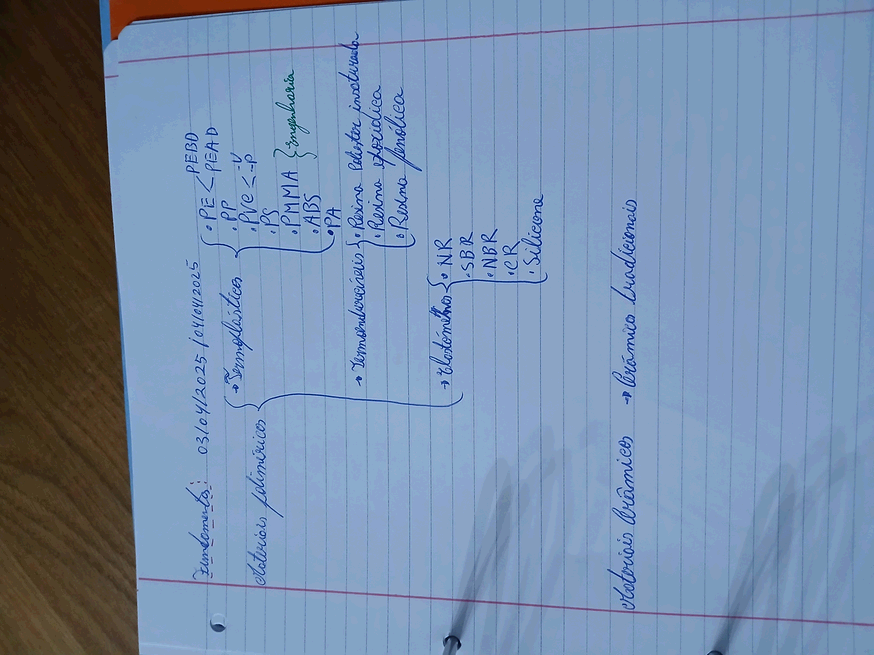 Fundamentos: 03/04/2025 / 04/04/2025
Materiais poliméricos
→ Termoplásticos
• PE < PEBD
PEAD
• PP
• PVC < -V
-P
• PS
• PMMA } Engenharia
• ABS
• PA
→ Termoendurecíveis
• Resina Poliester insaturada
• Resina epoxidica
• Resina fenólica
→ Elastómeros
• NR
• SBR
• NBR
• CR
• Silicone
Materiais Cerâmicos → Cerâmico tradicionais